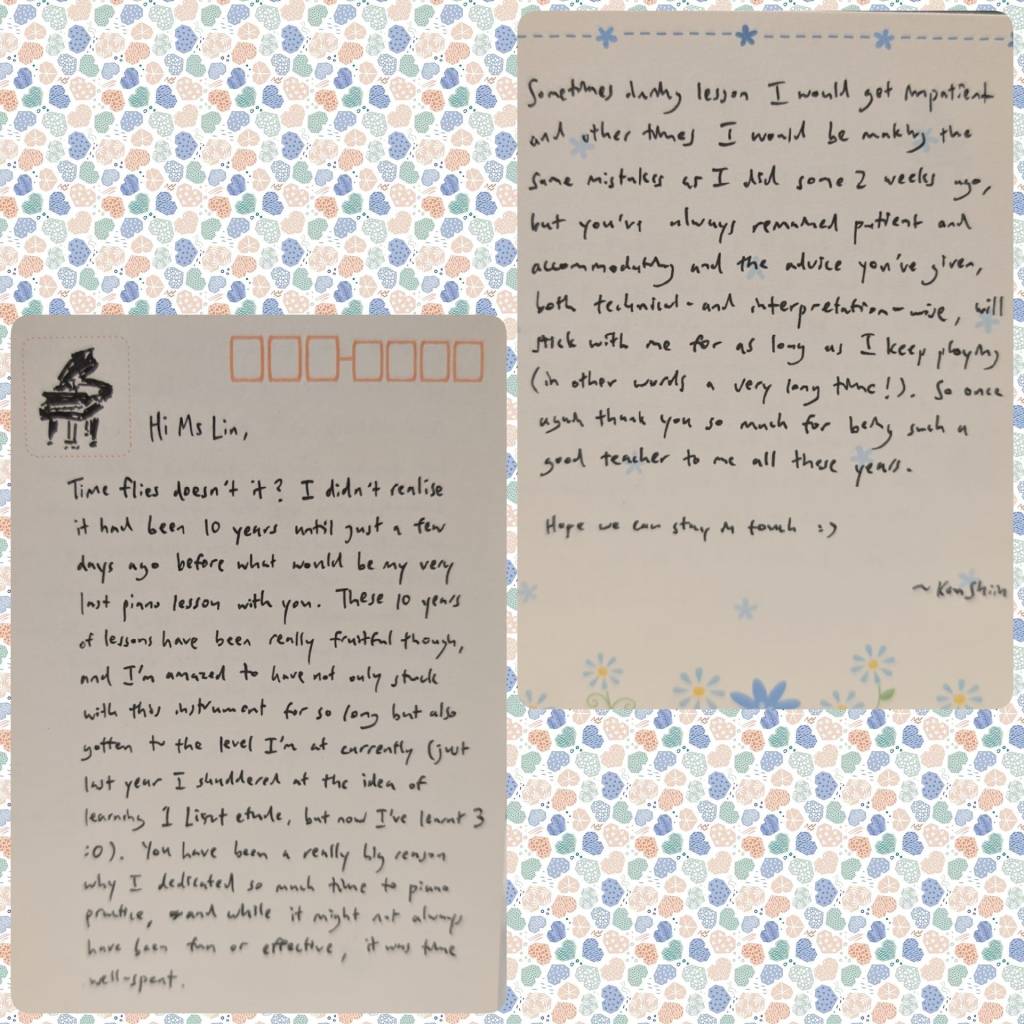 Hi Ms Lin,
Time flies doesn't it? I didn't realise
it had been 10 years until just a few
days ago before what would be my very
last piano lesson with you. These 10 years
of lessons have been really fruitful though,
and I'm amazed to have not only stuck
with this instrument for so long but also
gotten to the level I'm at currently (just
last year I shuddered at the idea of
learning 1 Liszt etude, but now I've learnt 3
:O). You have been a really big reason
why I dedicated so much time to piano
practice, and while it might not always
have been fun or effective, it was time
well-spent.
Sometimes during lesson I would get impatient
and other times I would be making the
same mistakes as I did some 2 weeks ago,
but you've always remained patient and
accommodating and the advice you've given,
both technical- and interpretation-wise, will
stick with me for as long as I keep playing
(in other words a very long time!). So once
again thank you so much for being such a
good teacher to me all these years.
Hope we can stay in touch :)
~ Ken Shiin